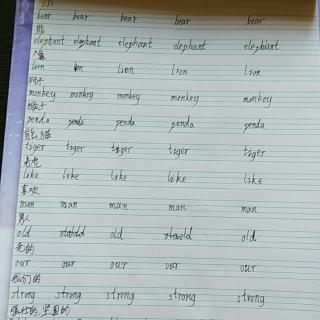 131
bear bear bear bear bear
熊
elephant elephant elephant elephant elephant
lion lion lion lion
狮子
monkey monkey monkey monkey monkey
猴子
penda penda penda penda penda
熊猫
tiger tiger tiger tiger tiger
老虎
like like like like like
喜欢
man man man man man
男人
old old old
老的
our our our our our
我们的
strong strong strong strong strong
强壮的,坚固的